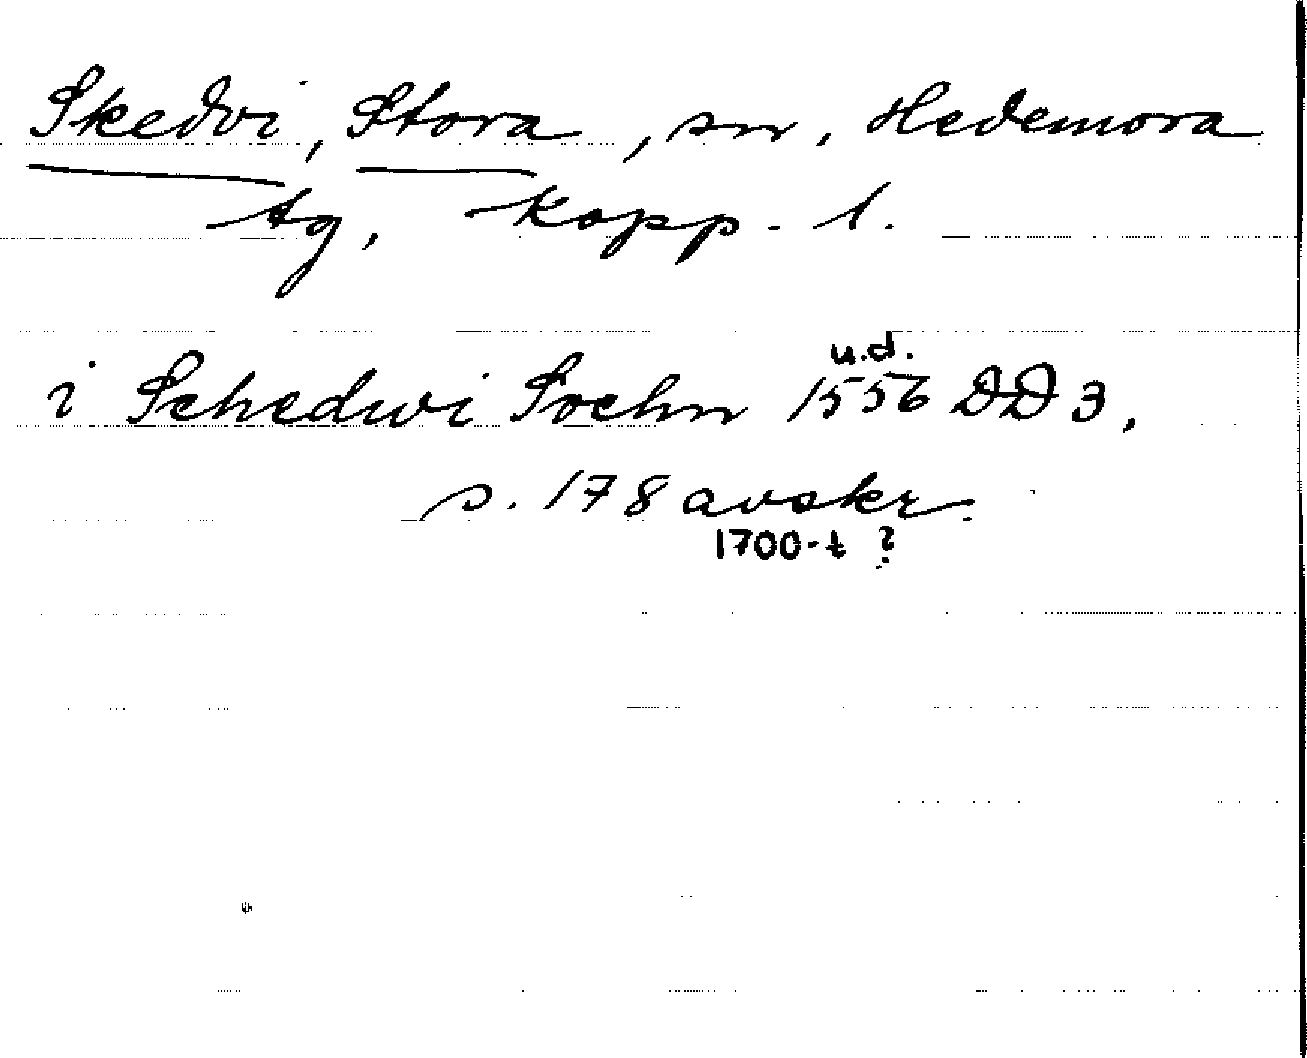 Skedvi, Stora, sn, Hedemora
tg, Kopp. l.
u.d.
i Schedwi Sochn 1556 DD 3,
s. 178 avskr.
1700-t ?